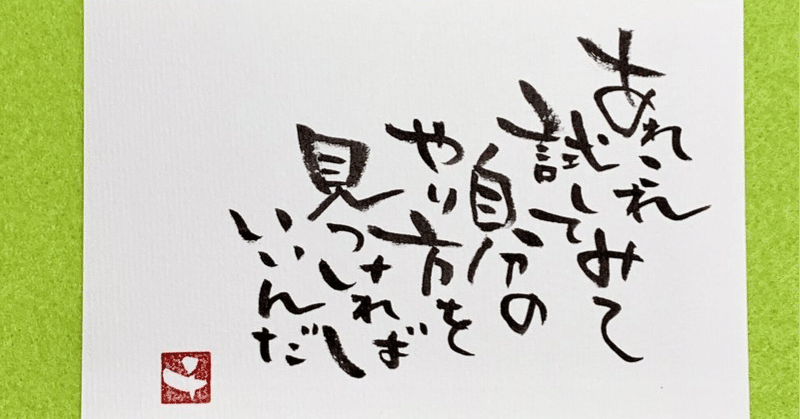 あれこれ
試してみて
自分の
やり方を
見つければ
いいんだ